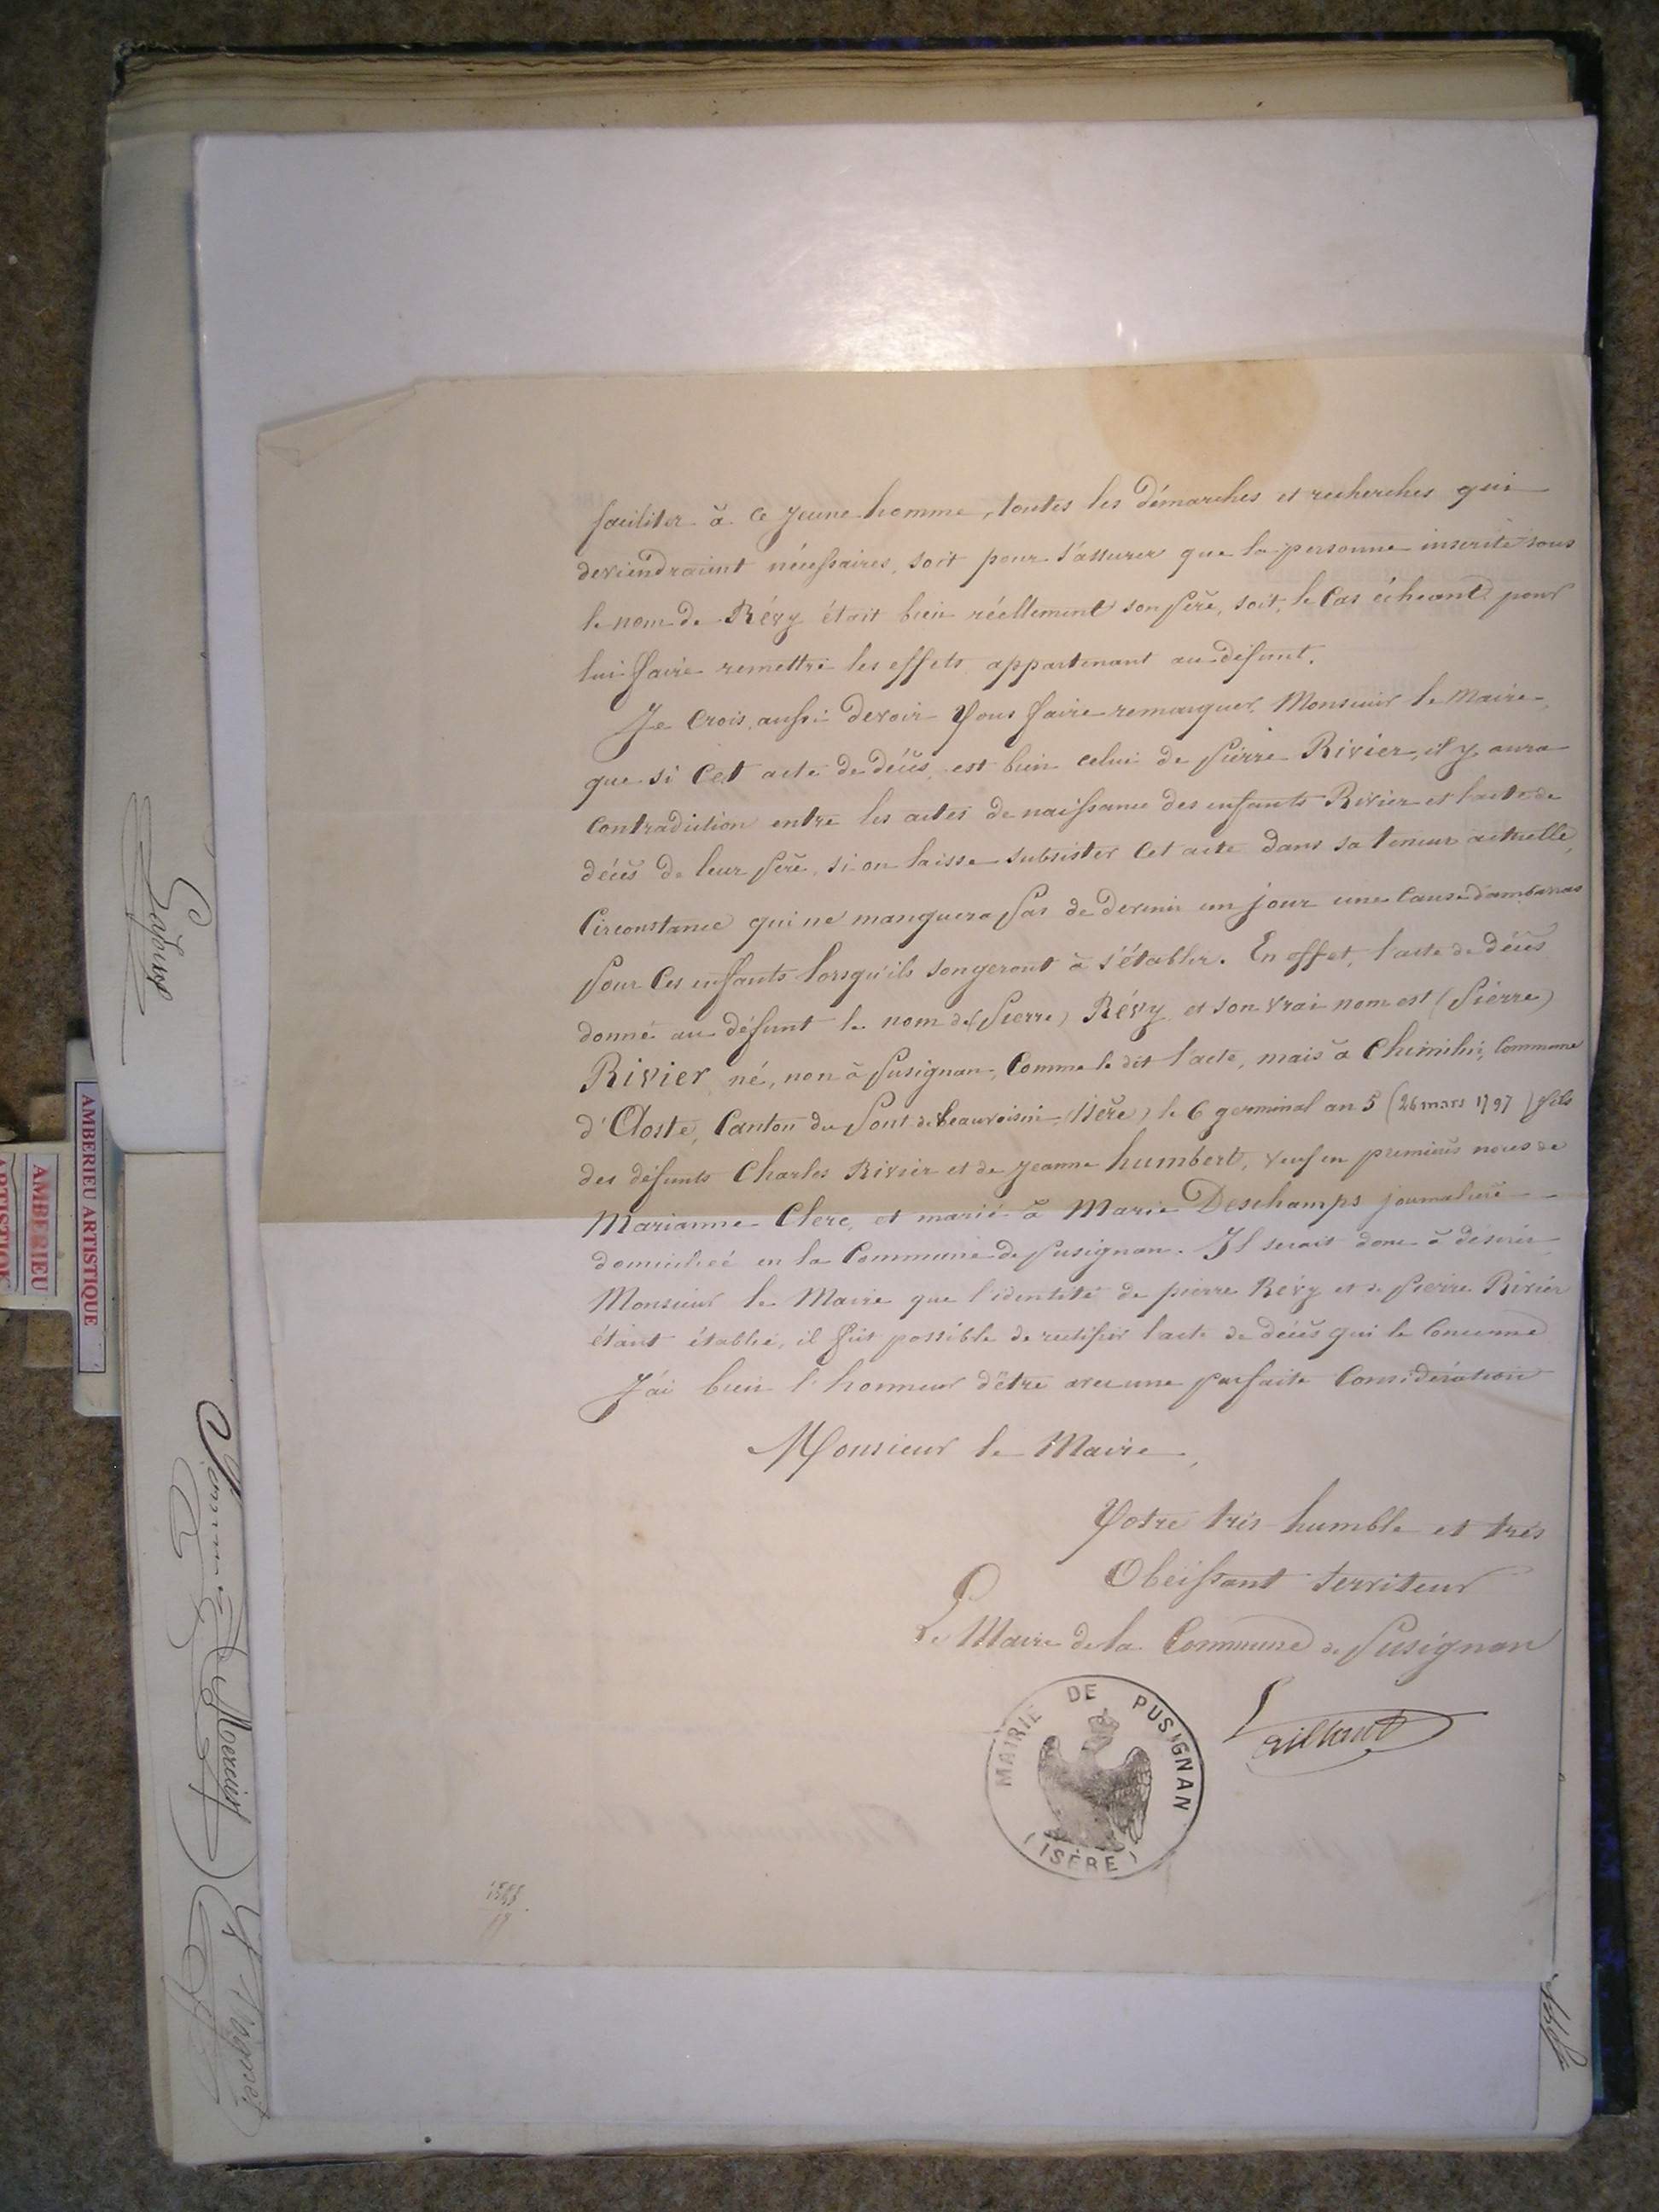 faciliter à ce jeune homme, toutes les démarches et recherches qui
deviendraient nécessaires, soit pour s'assurer que la personne inscrite sous
le nom de Révy était bien réellement son père, soit, le cas échéant pour
lui faire remettre les effets appartenant au défunt.
Je crois aussi devoir vous faire remarquer, Monsieur le Maire,
que si cet acte de décès, est bien celui de Pierre Rivier, il y aura
contradiction entre les actes de naissance des enfants Rivier et l'acte de
décès de leur père, si on laisse subsister cet acte dans sa teneur actuelle,
circonstance qui ne manquera pas de devenir un jour une cause d'ambarras
pour ces enfants lorsqu'ils songeront à s'établir. En effet, l'acte de décès
donne au défunt le nom de (Pierre) Révy et son vrai nom est (Pierre)
Rivier né, non à Pusignan, comme le dit l'acte, mais à Chimilin, commune
d'Aoste, Canton du Pont de beauvoisin (Isère) le 6 germinal an 5 (26 mars 1797) fils
des défunts Charles Rivier et de jeanne humbert, veuf en premières noces de
Marianne Clerc, et marié à Marie Deschamps journalière
domiciliée en la Commune de Pusignan. Il serait donc à désirer
Monsieur le Maire que l'identité de pierre Révy et de Pierre Rivier
étant établie, il fut possible de rectifier l'acte de décès qui le concerne
J'ai bien l'honneur d'être avec une parfaite considération
Monsieur le Maire,
Votre très humble et très
Obéissant serviteur
Le Maire de la Commune de Pusignan
MAIRIE DE PUSIGNAN
(ISÈRE)
AMBERIEU ARTISTIQUE
AMBERIEU
ARTISTIQUE